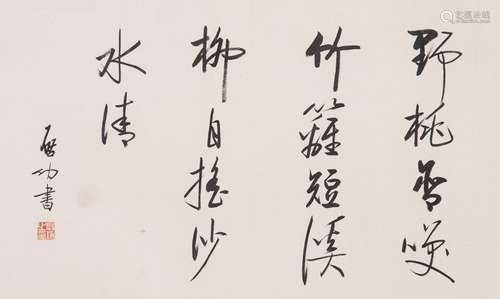 野桃含咲
竹籬短溪
柳自搖沙
水清
啟功書